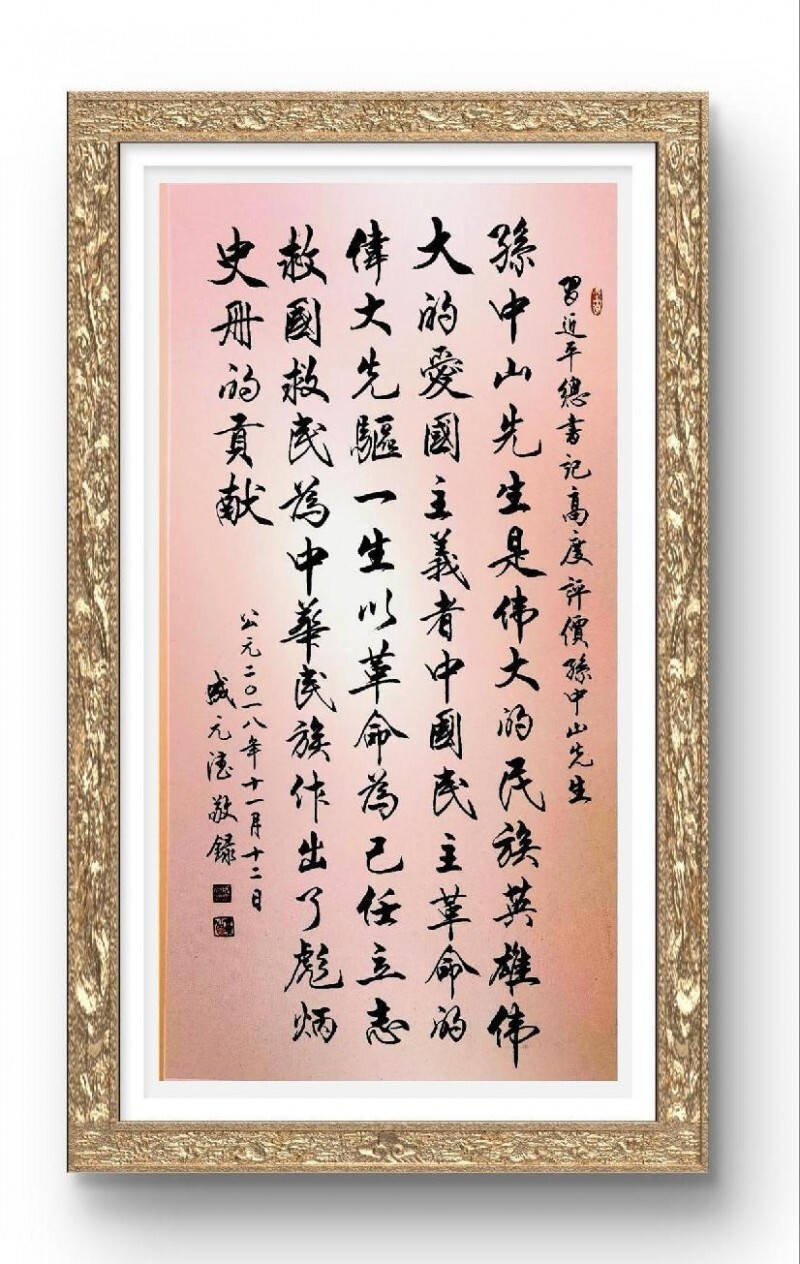 習近平總書記高度評價孫中山先生
孫中山先生是伟大的民族英雄伟
大的愛國主義者中國民主革命的
偉大先驅一生以革命為己任立志
救國救民為中華民族作出了彪炳
史册的貢献
公元二〇一八年十一月十二日
盛元清敬録